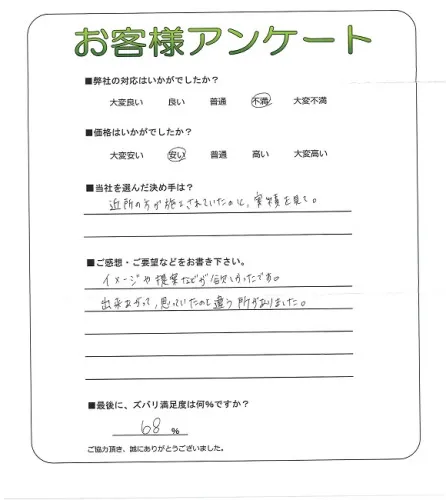 お客様アンケート
■弊社の対応はいかがでしたか?
大変良い 良い 普通 不満 大変不満
■価格はいかがでしたか?
大変安い 安い 普通 高い 大変高い
■当社を選んだ決め手は?
近所の方が施工されていたのと、実績を見て。
■ご感想・ご要望などをお書き下さい。
イメージや提案などが欲しかったです。
出来あがって、思っていたのと違う所がありました。
■最後に、ズバリ満足度は何%ですか?
68 %
ご協力頂き、誠にありがとうございました。